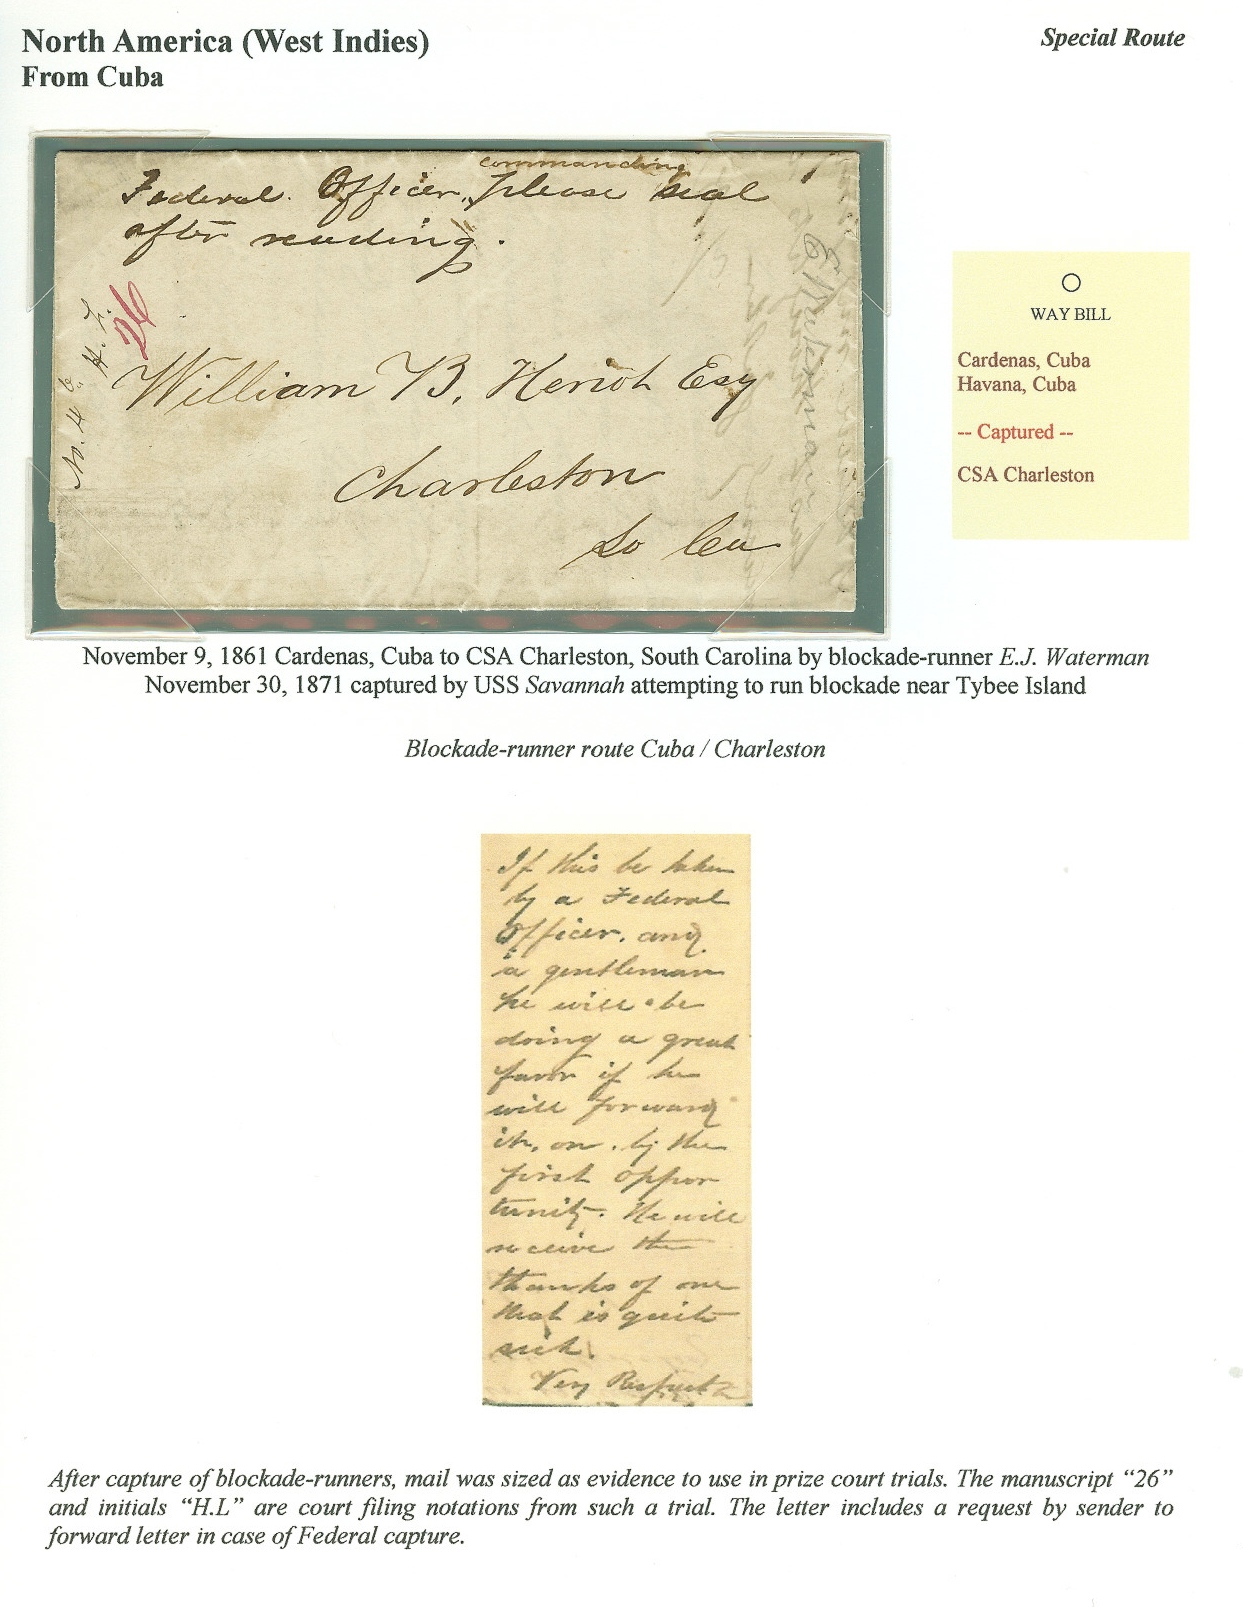 North America (West Indies)
Special Route
From Cuba
commanding
Federal Officer, please seal
after reading.
26
H. L.
No. 4
William B. Heriot Esq
Charleston
So Ca
E J Waterman
WAY BILL
Cardenas, Cuba
Havana, Cuba
-- Captured --
CSA Charleston
November 9, 1861 Cardenas, Cuba to CSA Charleston, South Carolina by blockade-runner E.J. Waterman
November 30, 1871 captured by USS Savannah attempting to run blockade near Tybee Island
Blockade-runner route Cuba / Charleston
If this be taken
by a Federal
Officer, and
a gentleman
he will be
doing a great
favor if he
will forward
it, on, by the
first oppor
tunity. He will
receive the
thanks of one
that is quite
sick.
Very Respect
After capture of blockade-runners, mail was sized as evidence to use in prize court trials. The manuscript “26”
and initials “H.L” are court filing notations from such a trial. The letter includes a request by sender to
forward letter in case of Federal capture.